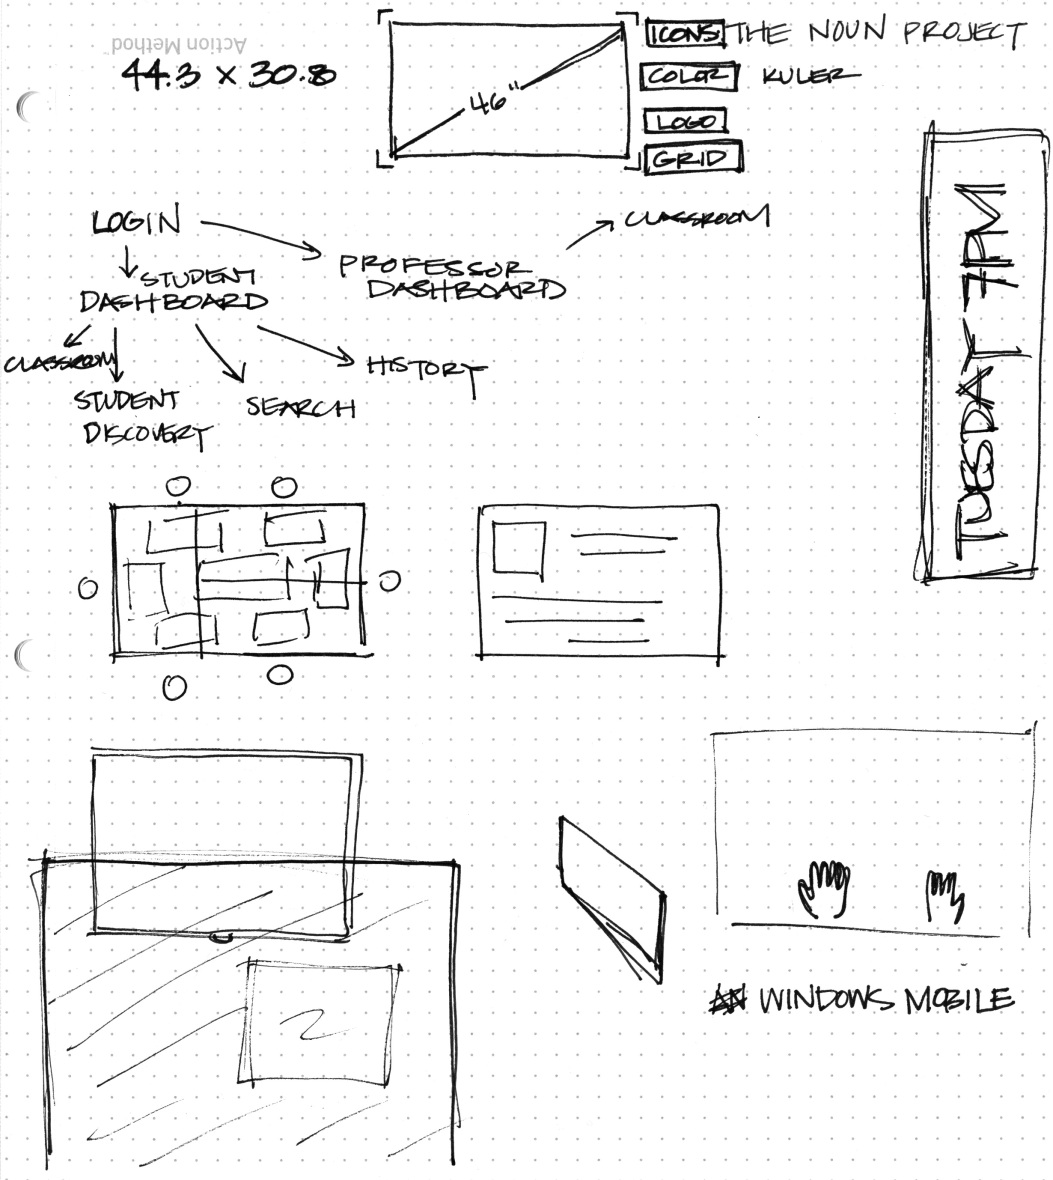 Action Method
44.3 x 30.8
46"
ICONS THE NOUN PROJECT
COLOR KULER
LOGO
GRID
LOGIN
STUDENT
DASHBOARD
PROFESSOR
DASHBOARD
CLASSROOM
CLASSROOM
STUDENT
DISCOVERY
SEARCH
HISTORY
TUESDAY 7PM
WINDOWS MOBILE